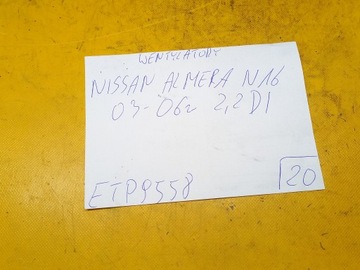 WENTYLATORY
NISSAN ALMERA N16
03-06r 2,2 DI
ETP9558
20